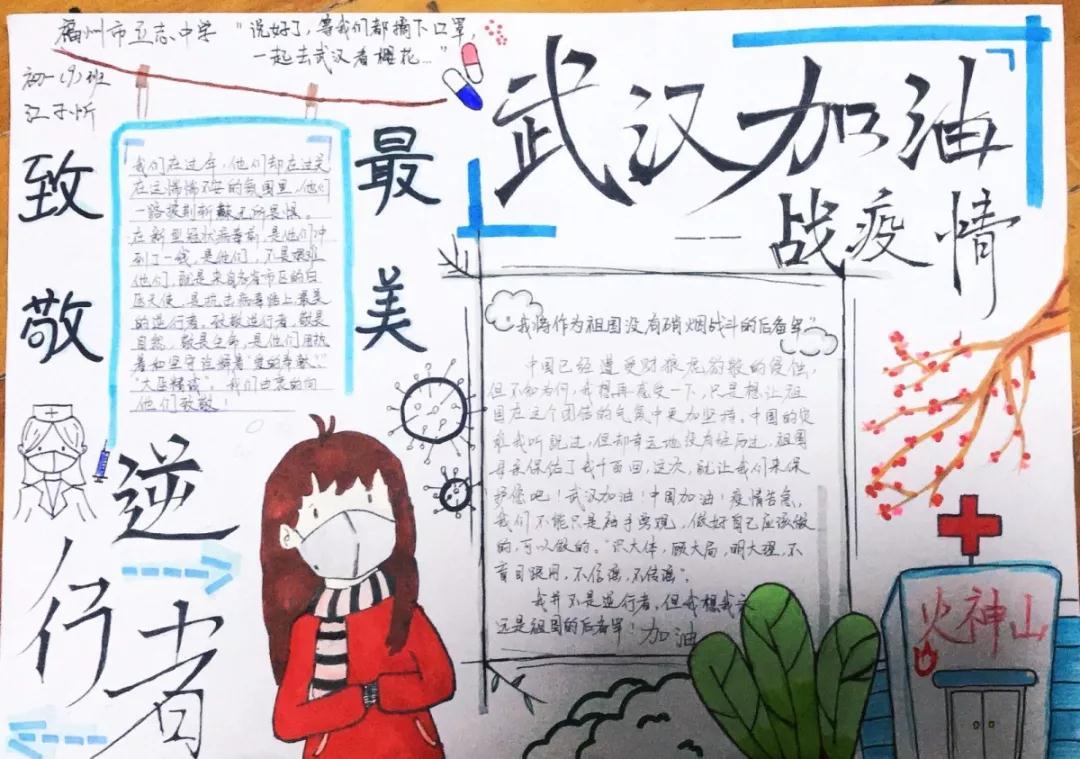 福州市立志中学
初一(9)班
江子忻
"说好了,等我们都摘下口罩,
一起去武汉看樱花…"
武汉加油
战疫情
致敬
最美
逆行者
我们在过年,他们却在过关
在这惴惴不安的氛围里,他们
一路披荆斩棘无所畏惧。
在新型冠状病毒前,是他们冲
到了一线,是他们,不是根班
他们,就是来自各省市区的白
医天使,是抗击病毒路上最美
的逆行者。致敬逆行者,敬畏
自然,敬畏生命,是他们用执
着和坚守诠释着"爱的奉献"
"大医精诚"。我们由衷的向
他们致敬!
"我将作为祖国没有硝烟战斗的后备军"
中国已经遭受财狼虎豹般的侵蚀,
但不知为何,我想再感受一下,只是想让祖
国在这个团结的气氛中更加坚持。中国的灾
难我听说过,但却幸运地没有经历过,祖国
母亲保佑了我千百回,这次,就让我们来保
护您吧!武汉加油!中国加油!疫情告急,
我们不能只是袖手旁观,做好自己应该做
的,可以做的。"识大体,顾大局,明大理,不
盲目跟风,不信谣,不传谣"。
我并不是逆行者,但我想我
还是祖国的后备军!加油
火神山